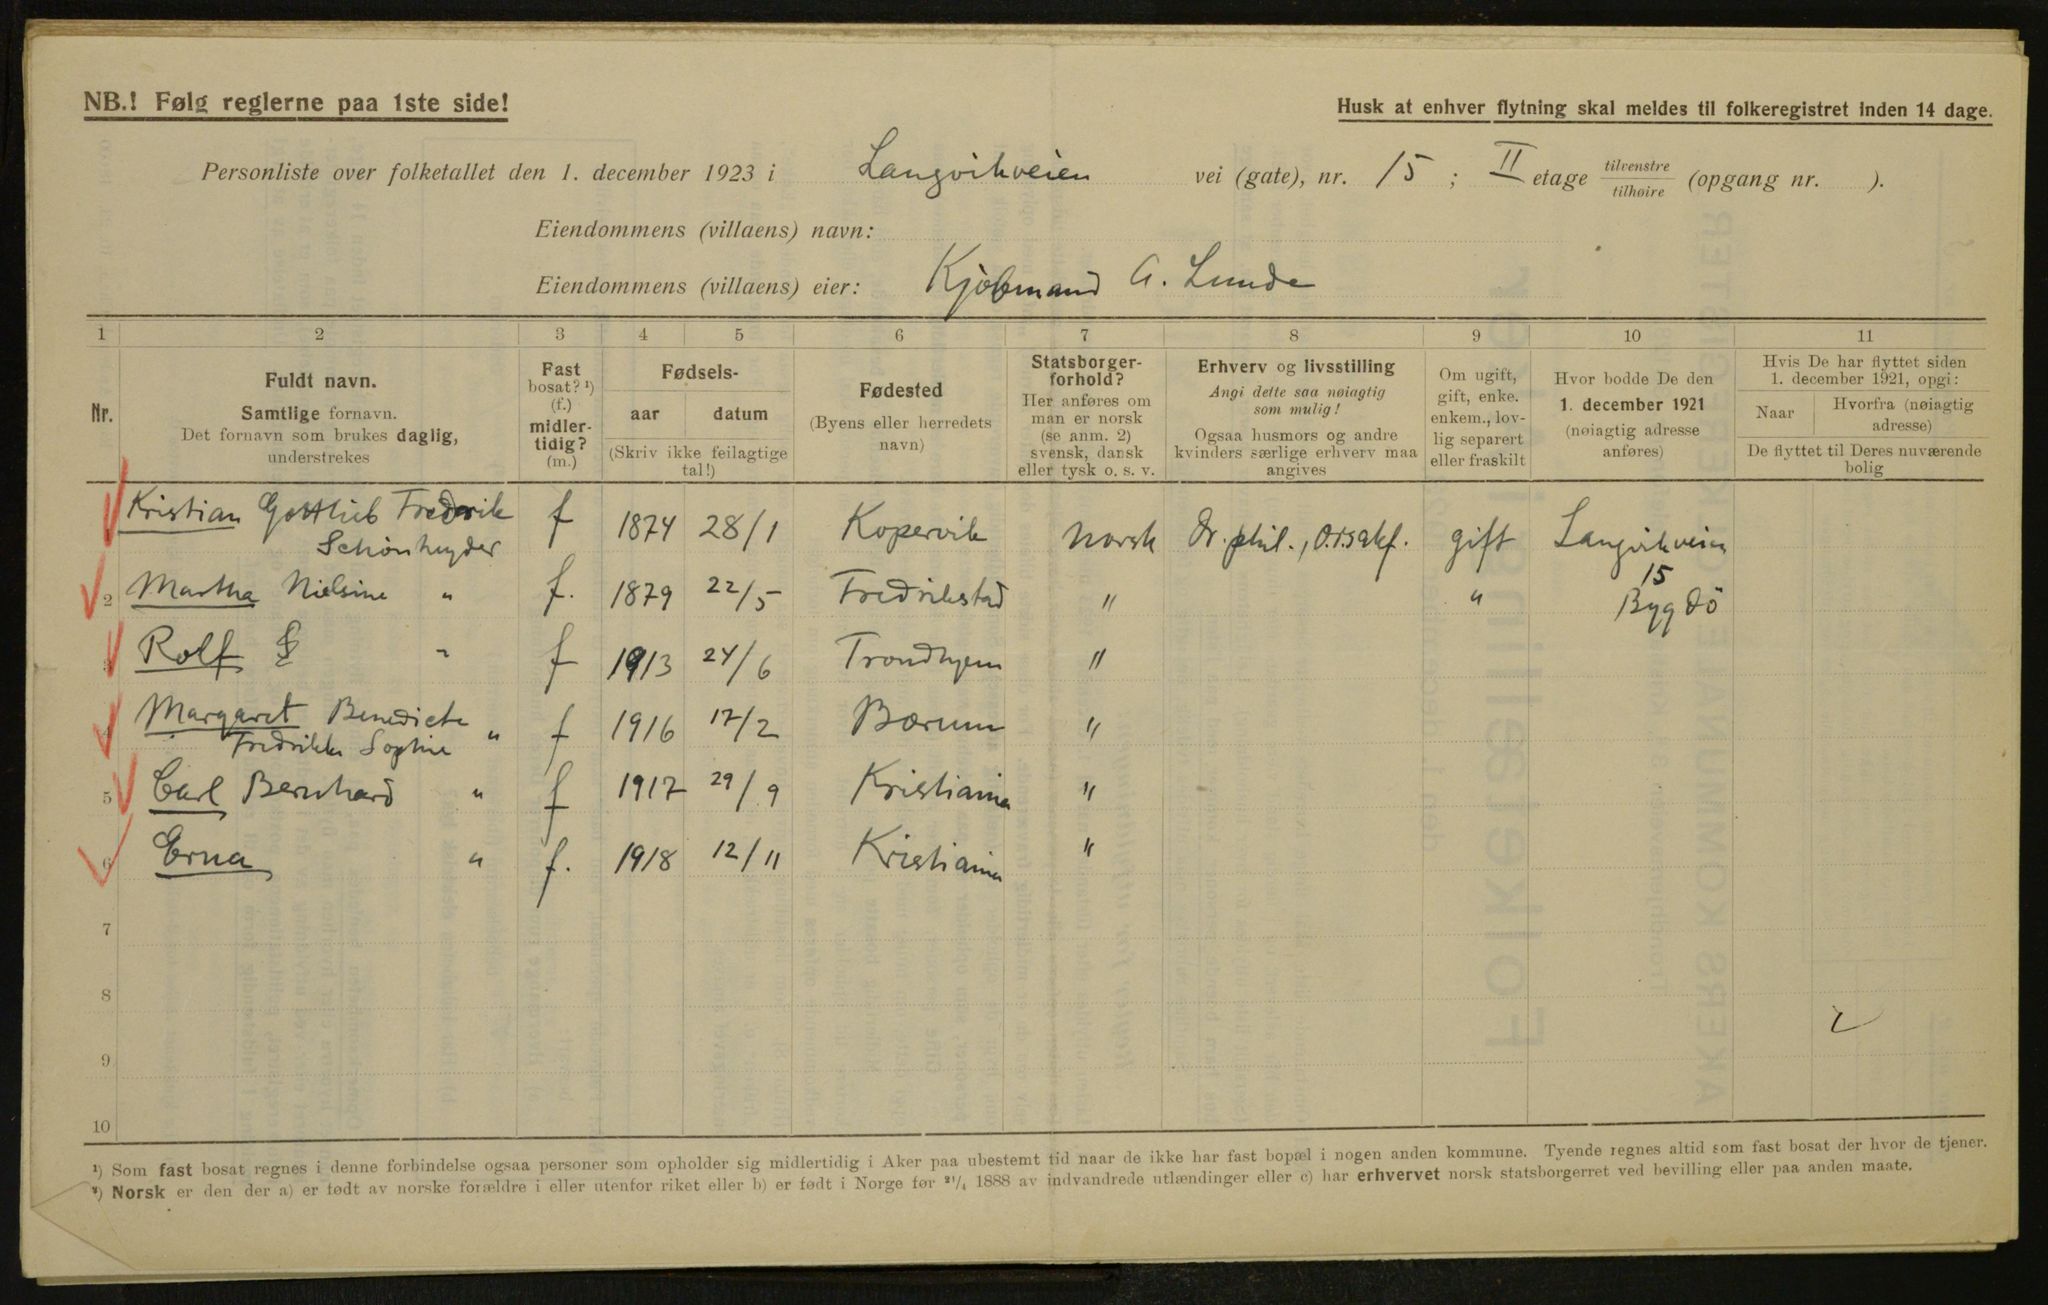 NB.! Følg reglerne paa 1ste side!
Husk at enhver flytning skal meldes til folkeregistret inden 14 dage.
Personliste over folketallet den 1. december 1923 i Langvikveien vei (gate), nr. 15 ; II etage tilvenstre/tilhøire (opgang nr. ).
Eiendommens (villaens) navn:
Eiendommens (villaens) eier: Kjøbmand A. Lunde
1 2 3 4 5 6 7 8 9 10 11
Nr.
Fuldt navn.
Samtlige fornavn.
Det fornavn som brukes daglig,
understrekes
Fast
bosat? ¹)
(f.)
midler-
tidig?
(m.)
Fødsels-
aar datum
(Skriv ikke feilagtige
tal!)
Fødested
(Byens eller herredets
navn)
Statsborger-
forhold?
Her anføres om
man er norsk
(se anm. 2)
svensk, dansk
eller tysk o. s. v.
Erhverv og livsstilling
Angi dette saa nøiagtig
som mulig!
Ogsaa husmors og andre
kvinders særlige erhverv maa
angives
Om ugift,
gift, enke.
enkem., lov-
lig separert
eller fraskilt
Hvor bodde De den
1. december 1921
(nøiagtig adresse
anføres)
Hvis De har flyttet siden
1. december 1921, opgi:
Naar Hvorfra (nøiagtig
adresse)
De flyttet til Deres nuværende
bolig
Kristian Gottlieb Fredrik f 1874 28/1 Kopervik norsk Dr. phil., gift Langvikveien
Schønheyder 15
2 Martha Nielsine " f. 1879 22/5 Fredrikstad " " Bygdö
3 Rolf " f 1913 24/6 Trondhjem "
4 Margaret Benedicte " f 1916 17/2 Bærum "
Fredrikke Sophie
5 Carl Bernhard " f 1917 29/9 Kristiania "
6 Erna " f. 1918 12/11 Kristiania "
7
8
9
10
¹) Som fast bosat regnes i denne forbindelse ogsaa personer som opholder sig midlertidig i Aker paa ubestemt tid naar de ikke har fast bopæl i nogen anden kommune. Tyende regnes altid som fast bosat der hvor de tjener.
²) Norsk er den der a) er født av norske forældre i eller utenfor riket eller b) er født i Norge før ²¹/₄ 1888 av indvandrede utlændinger eller c) har erhvervet norsk statsborgerret ved bevilling eller paa anden maate.